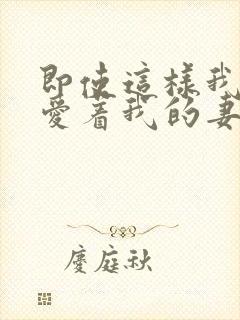 即使這樣我
愛着我的妻
慶庭秋